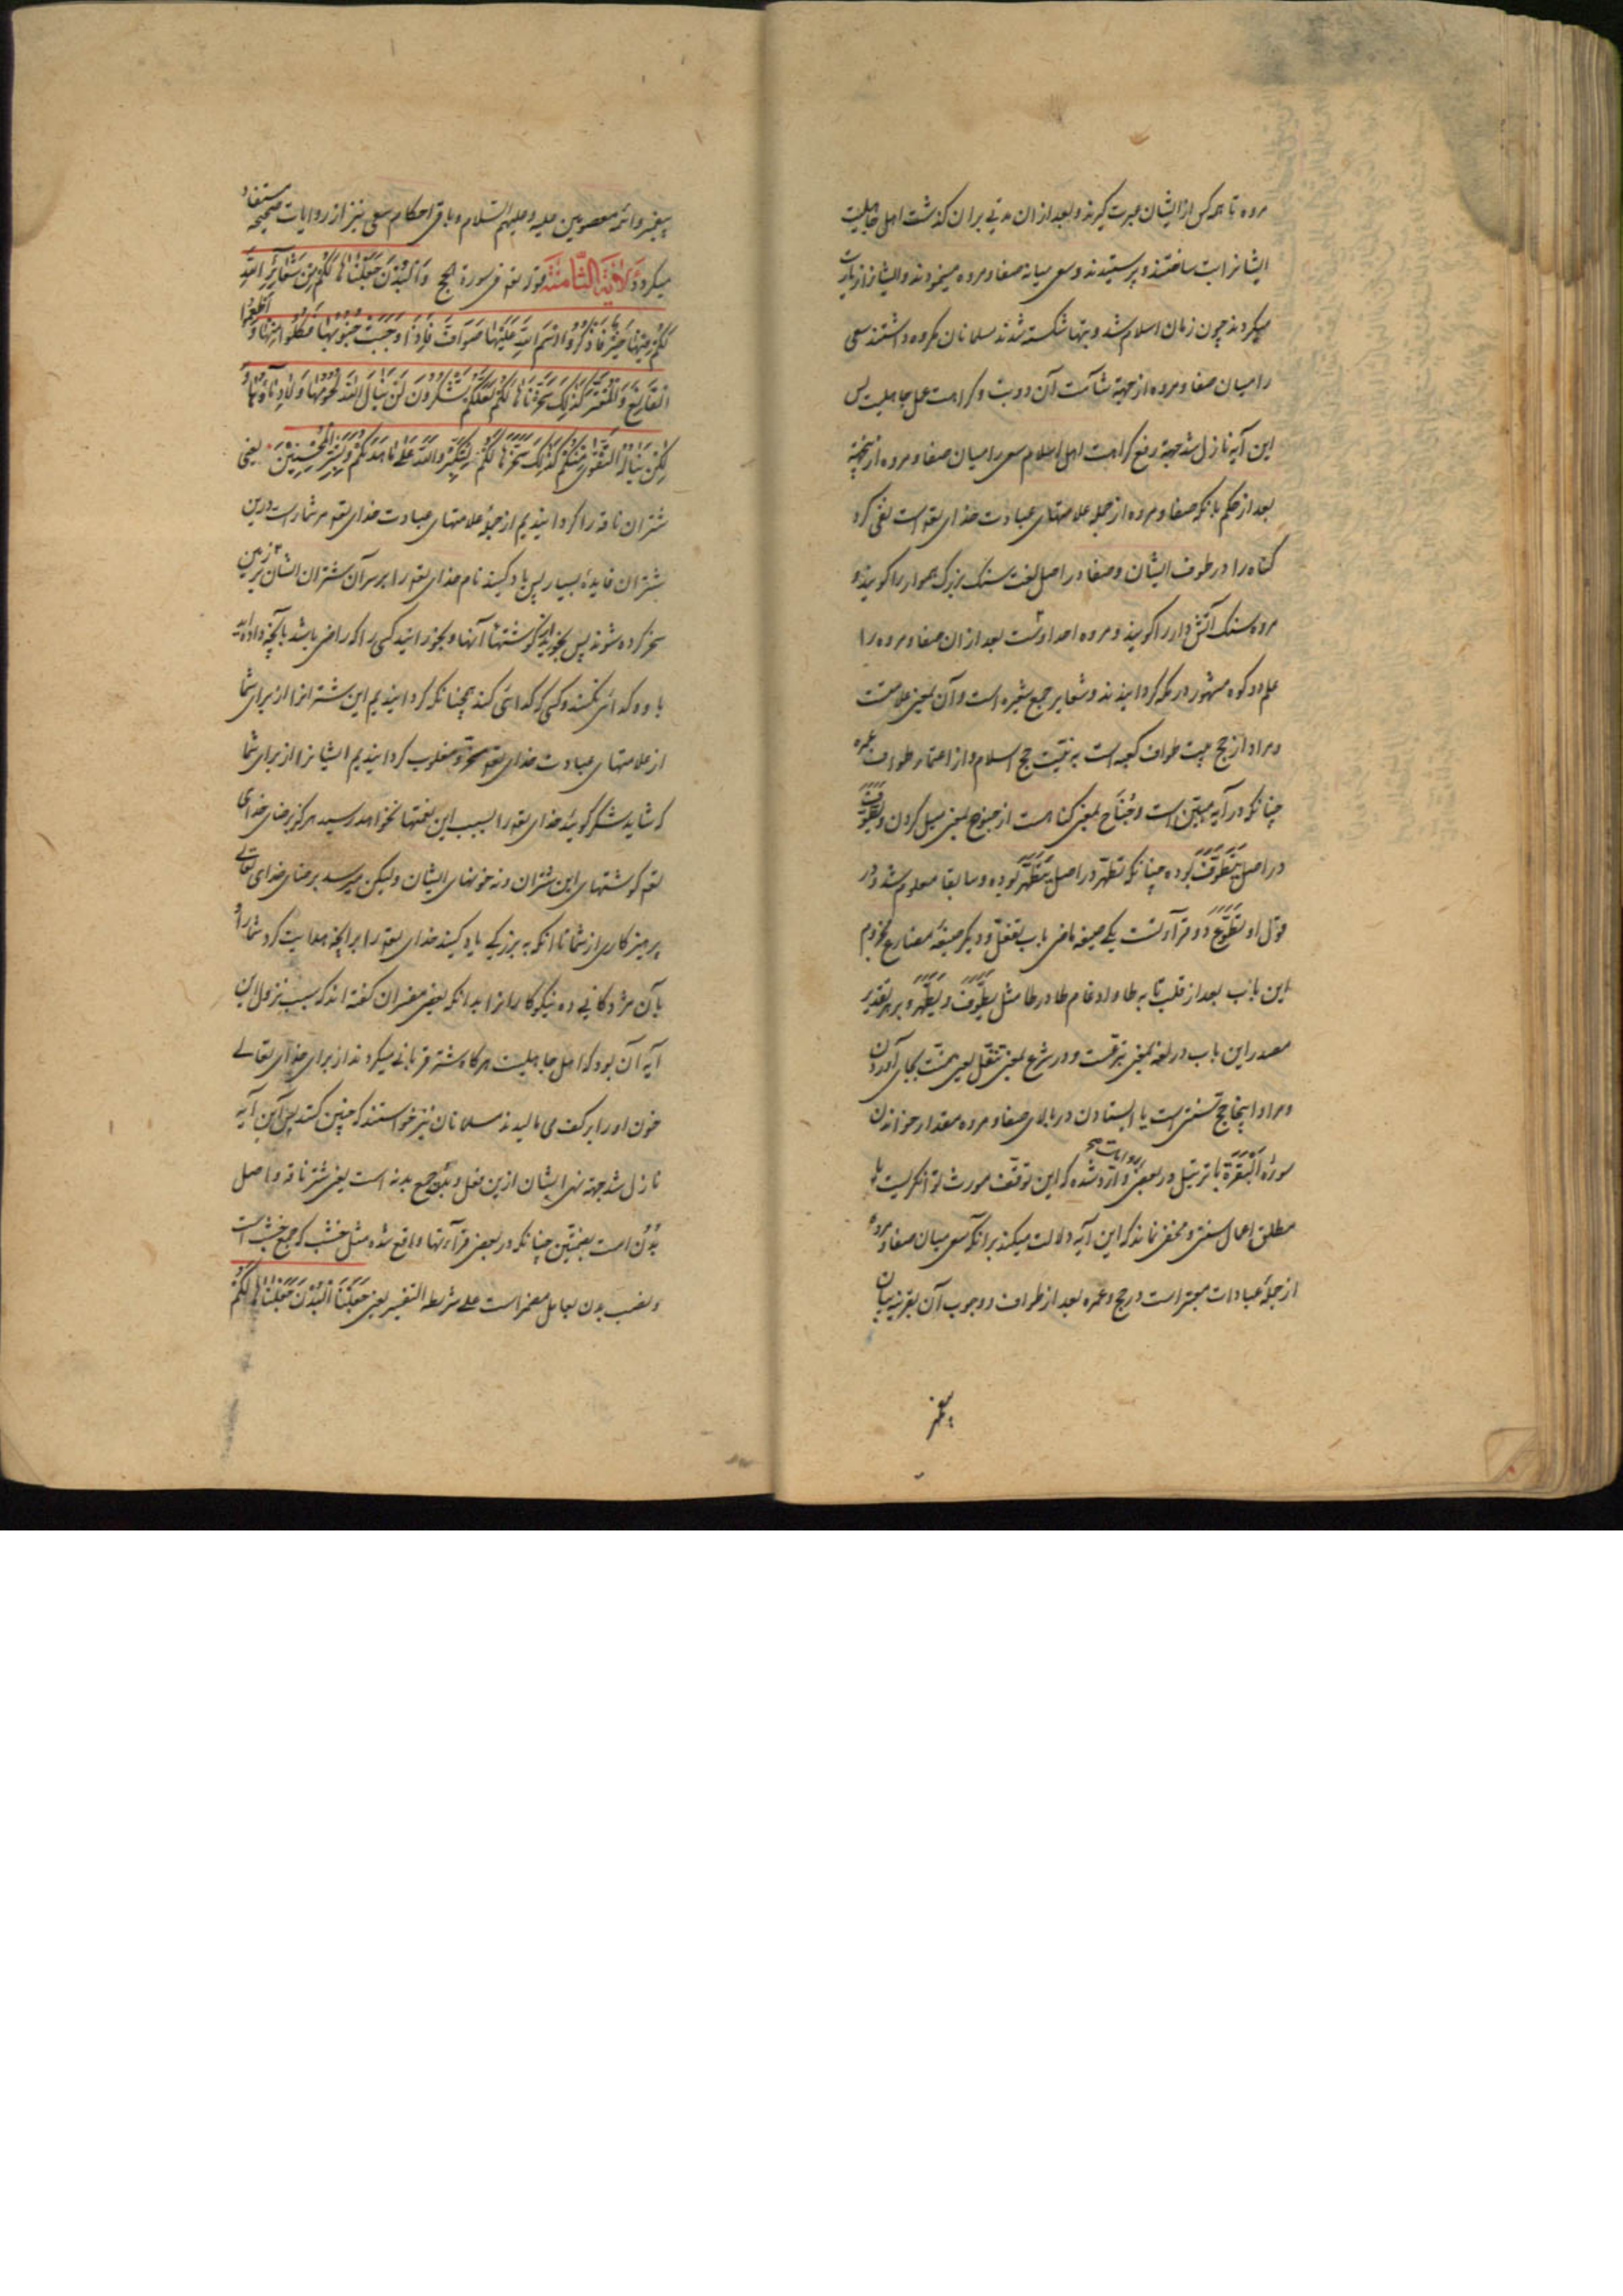 مروه تا همه کس از ایشان عبرت گیرند و بعد از ان مدتی بران گذشت اهل جاهلیت
ایشانرا بت ساختند و پرستیدند و سعی میانه صفا و مروه مینمودند و ایشانرا زیارت
میکردند چون زمان اسلام شد و بتها شکسته شدند مسلمانان مکروه داشتند سعی
را میان صفا و مروه از جهة شآمت آن دو بت و کراهت عمل جاهلیت پس
این آیه نازل شد جهة رفع کراهت اهل اسلام سعی را میان صفا و مروه ازینجهة
بعد از حکم بانکه صفا و مروه از جمله علامتهای عبادت خدای تعه است نفی کرد
کناه را در طوف ایشان و صفا در اصل لغت سنک بزرک هموار را کویند و
مروه سنک آتش دار را کویند و مروه احد اوست بعد ازان صفا و مروه را
علم دو کوه مشهور در مکه کردانیدند و شعایر جمع شعیره است و آن بمعنی علامتست
و مراد از حج بیت طواف کعبه است به نیت حج اسلام و از اعتمار طواف عمره
چنانکه در آیه مبیّن است و جُنَاح بمعنی کناهست از جنوح بمعنی میل کردن و یَطَّوَّفَ
در اصل یَتَطَوَّفَ بوده چنانکه تطهّر در اصل یَتَطَهَّرَ بوده و سابقا معلوم شد و در
قول او تَطَوَّعَ دو قرآءتست یکی صیغه ماضی باب تفعّل و دیگر صیغهٔ مضارع مجزوم
این باب بعد از قلب تا به طا و ادغام طا در طا مثل یَطَّوَّفَ و یَطَّهَّرَ و بر هر تقدیر
مصدر این باب در لغة بمعنی تبرعست و در شرع بمعنی تنفّل یعنی سنّت بجای آوردن
و مراد اینجا حج سنتی است یا ایستادن در بالای صفا و مروه مقدار خواندن
سورهٔ اَلْبَقَرَة با ترتیل و در بعضی روایات صحیحه وارد شده که این توقّف مورث توانگریست یا
مطلق اعمال سنتی و مخفی نماند که این آیه دلالت میکند بر آنکه سعی میان صفا و مروه
از جملهٔ عبادات معتبر است در حج و عمره بعد از طواف و وجوب آن بقرینه بیان
پیغمبر
پیغمبر و ائمه معصومین علیه و علیهم السّلام و باقی احکام سعی نیز از روایات صحیحه مستفاد
میکردد وَ الْآیَة الثَّامِنَة قوله تعه فی سورة الحج وَ الْبُدْنَ جَعَلْنَاهَا لَکُمْ مِنْ شَعَائِرِ اللّهِ
لَکُمْ فِیْهَا خَیْرٌ فَاذْکُرُوا اسْمَ اللّهِ عَلَیْهَا صَوَافَّ فَاِذَا وَجَبَتْ جُنُوبُهَا فَکُلُوا مِنْهَا وَ اَطْعِمُوا
الْقَانِعَ وَ الْمُعْتَرَّ کَذٰلِکَ سَخَّرْنَاهَا لَکُمْ لَعَلَّکُمْ تَشْکُرُونَ لَنْ یَنَالَ اللّهَ لُحُومُهَا وَ لَا دِمَاؤُهَا وَ
لٰکِنْ یَنَالُهُ التَّقْوٰی مِنْکُمْ کَذٰلِکَ سَخَّرَهَا لَکُمْ لِتُکَبِّرُوا اللّهَ عَلٰی مَا هَدٰیکُمْ وَ بَشِّرِ الْمُحْسِنِیْنَ یعنی
شتران ناقه را کردانیدیم از جملهٔ علامتهای عبادت خدای تعه مر شماراست درین
شتران فایدهٔ بسیار پس یاد کنید نام خدای تعه را بر سر آن شتران ایشان بر زمین
نحر کرده شوند پس بخورید از کوشتهای آنها و بخورانید کسی را که راضی باشد بانچه داده اند
باو و کدائی نکند و کسی که کدائی کند همچنانکه کردانیدیم این شترانرا از برای شما
از علامتهای عبادت خدای تعه مسخر و مغلوب کردانیدیم ایشانرا از برای شما
که شاید شکر کوئید خدای تعه را بسبب این نعمتها نخواهد رسید هرکز برضای خدای
تعه کوشتهای این شتران و نه خونهای ایشان ولیکن میرسد برضای خدای تعالی
پرهیزکاری از شما تا انکه به بزرکی یاد کنید خدای تعه را بر آنچه هدایت کرد شما را
بآن و مژدکانی ده نیکوکارانرا بدانکه بعضی مفسران کفته اند که سبب نزول این
آیه آن بود که اهل جاهلیت هرکاه شتر قربانی میکردند از برای خدای تعالی
خون او را بر کعبه می مالیدند مسلمانان نیز خواستند که چنین کنند پس این آیه
نازل شد جهة نهی ایشان ازین فعل و بُدْن جمع بدنه است یعنی شتر ناقه و اصل
بُدْن است بضمتین چنانکه در بعضی قرآءتها واقع شده مثل خشب که جمع خشبه است
و نصب بدن بعامل مضمر است علی شریطة التفسیر یعنی جَعَلْنَا الْبُدْنَ جَعَلْنَاهَا لَکُمْ